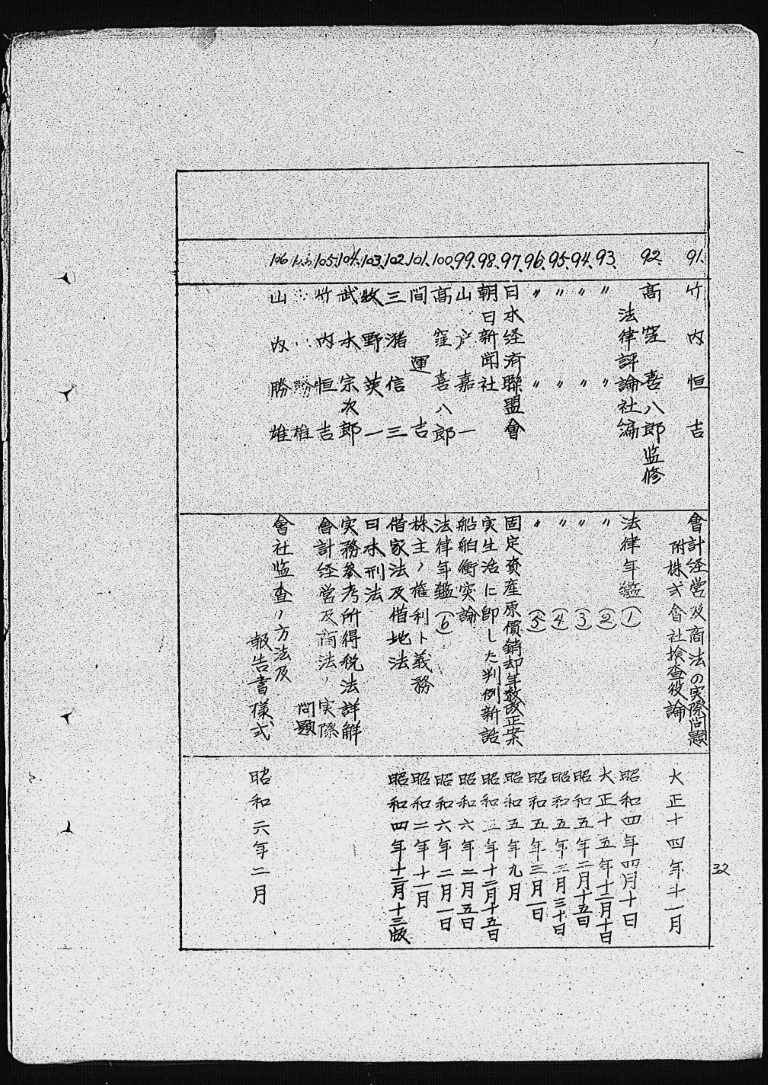 91.
竹内恒吉
會計経営及商法の実際問題
附株式會社検査役論
大正十四年十一月
92.
高窪喜八郎監修
法律評論社編
法律年鑑(1)
昭和四年四月十日
93.
〃〃
〃(2)
大正十五年十二月十日
94.
〃〃
〃(3)
昭和五年二月十五日
95.
〃〃
〃(4)
昭和五年三月三十日
96.
〃〃
〃(5)
昭和五年三月一日
97.
日本経済聯盟會
固定資産原價銷却年数改正案
昭和五年九月
98.
朝日新聞社
実生活に即した判例新話
昭和三年十二月十五日
99.
山戸嘉一
船舶衝突論
昭和六年二月五日
100.
高窪喜八郎
法律年鑑(6)
昭和六年二月一日
101.
間運吉
株主ノ権利ト義務
昭和二年十一月
102.
三潴信三
借家法及借地法
昭和四年十二月十三版
103.
牧野英一
日本刑法
104.
武本宗次郎
実務参考所得税法詳解
105.
竹内恒吉
會計経営及商法ノ実際
問題
106
山内勝雄
會社監査ノ方法及
報告書様式
昭和六年二月
32